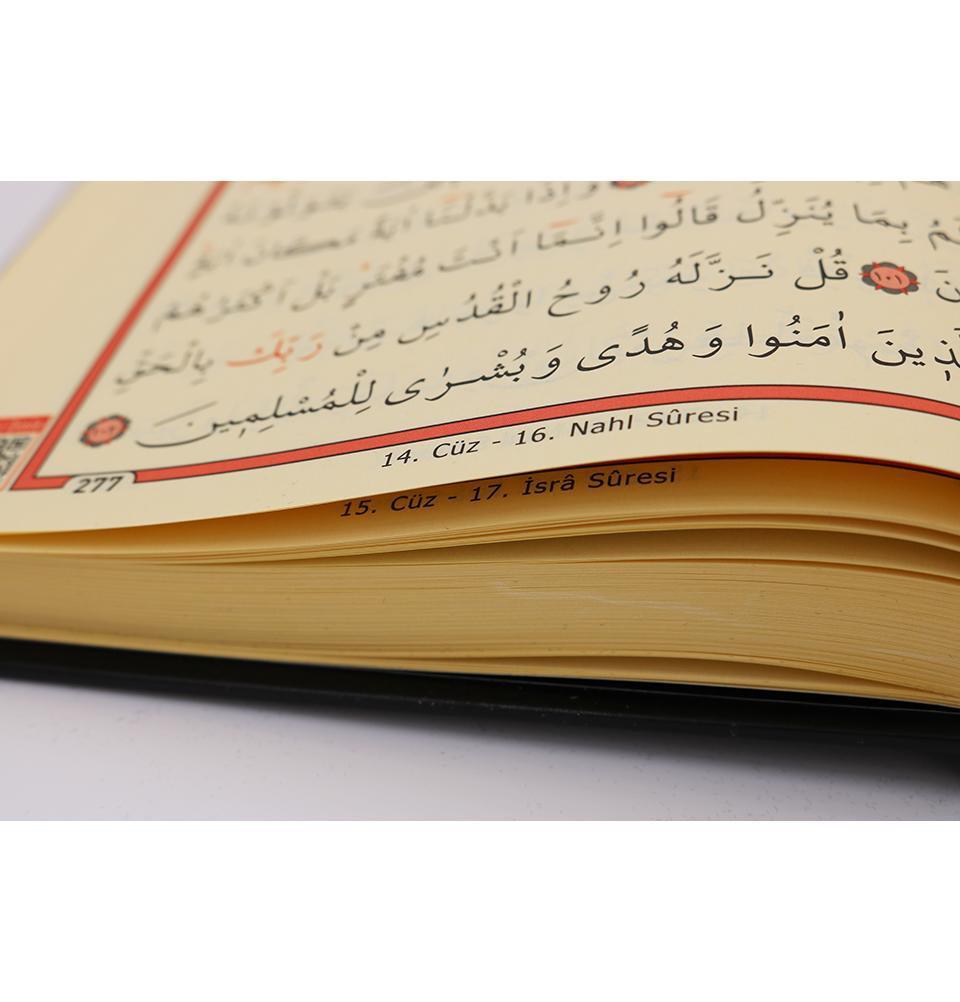 وَاِذَا بَدَّلْنَٓا اٰيَةً مَكَانَ اٰيَةٍۙ
بِمَا يُنَزِّلُ قَالُٓوا اِنَّمَٓا اَنْتَ مُفْتَرٍۜ بَلْ اَكْثَرُهُمْ
﴿١٠١﴾ قُلْ نَزَّلَهُ رُوحُ الْقُدُسِ مِنْ رَبِّكَ بِالْحَقِّ
اٰمَنُوا وَهُدًى وَبُشْرٰى لِلْمُسْلِمٖينَ
277
14. Cüz - 16. Nahl Sûresi
15. Cüz - 17. İsrâ Sûresi